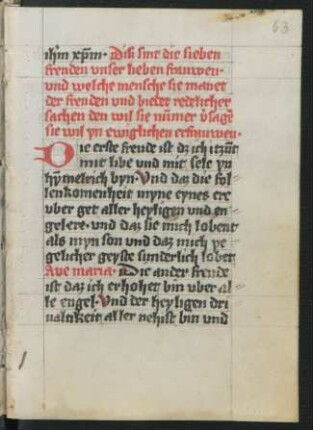 63
ihm xpm. Disz sint die sieben
freuden vnser lieben frauwen.
vnd wolche mensche sie manet
der freuden vnd bietet redelicher
sachen den wil sie nummer vsage
sie wil yn ewiglichen erfrauwen.
Die erste freude ist dz ich itzunt
mit libe vnd mit sele yn
hymelrich byn. Vnd daz die fol
lenkomenheit myne eynes ere
vber get aller heyligen vnd en
gelere. vnd daz sie mich lobent
als myn son vnd daz mich ye
gelicher geyste sunderlich lobet
Aue maria. Die ander freude
ist daz ich erhohet bin vber al
le engel. Vnd der heyligen dri
ualtikeit aller nehist bin vnd